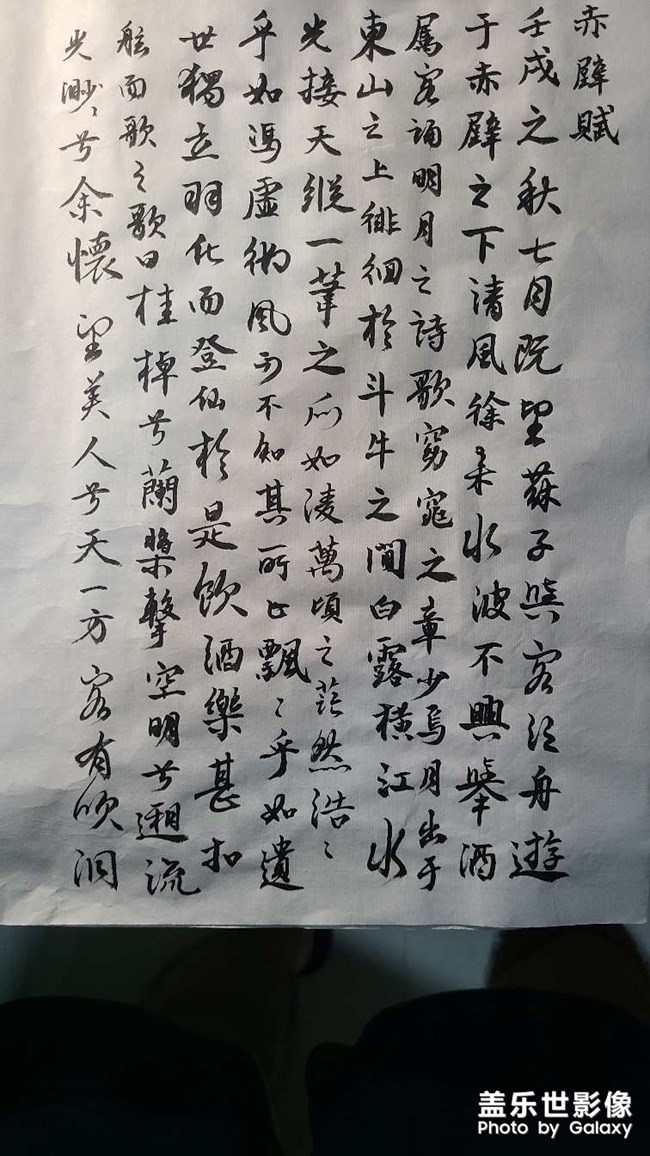 赤壁賦
壬戌之秋七月既望蘇子與客泛舟遊
于赤壁之下清風徐来水波不興舉酒
属客誦明月之詩歌窈窕之章少焉月出于
東山之上徘徊於斗牛之間白露橫江水
光接天縦一葦之所如凌萬頃之茫然浩〻
乎如馮虚御風而不知其所止飄〻乎如遺
世獨立羽化而登仙於是飲酒樂甚扣
舷而歌之歌曰桂棹兮蘭槳擊空明兮遡流
光渺〻兮余懷望美人兮天一方客有吹洞
盖乐世影像
Photo by Galaxy